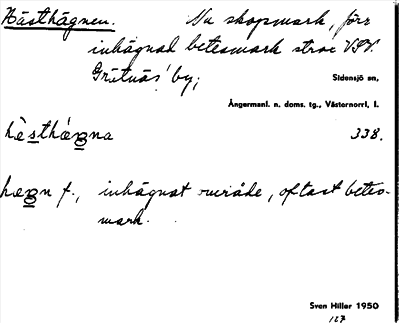 Hästhägnen. Nu skogsmark, förr
inhägnad betesmark strax V.S.V.
Gritnäs' by;
Sidensjö sn,
Ångermanl. n. doms. tg., Västernorrl. l.
hèsthǽgna 338.
hægn f., inhägnat område, oftast betes-
mark.
Sven Hiller 1950
127